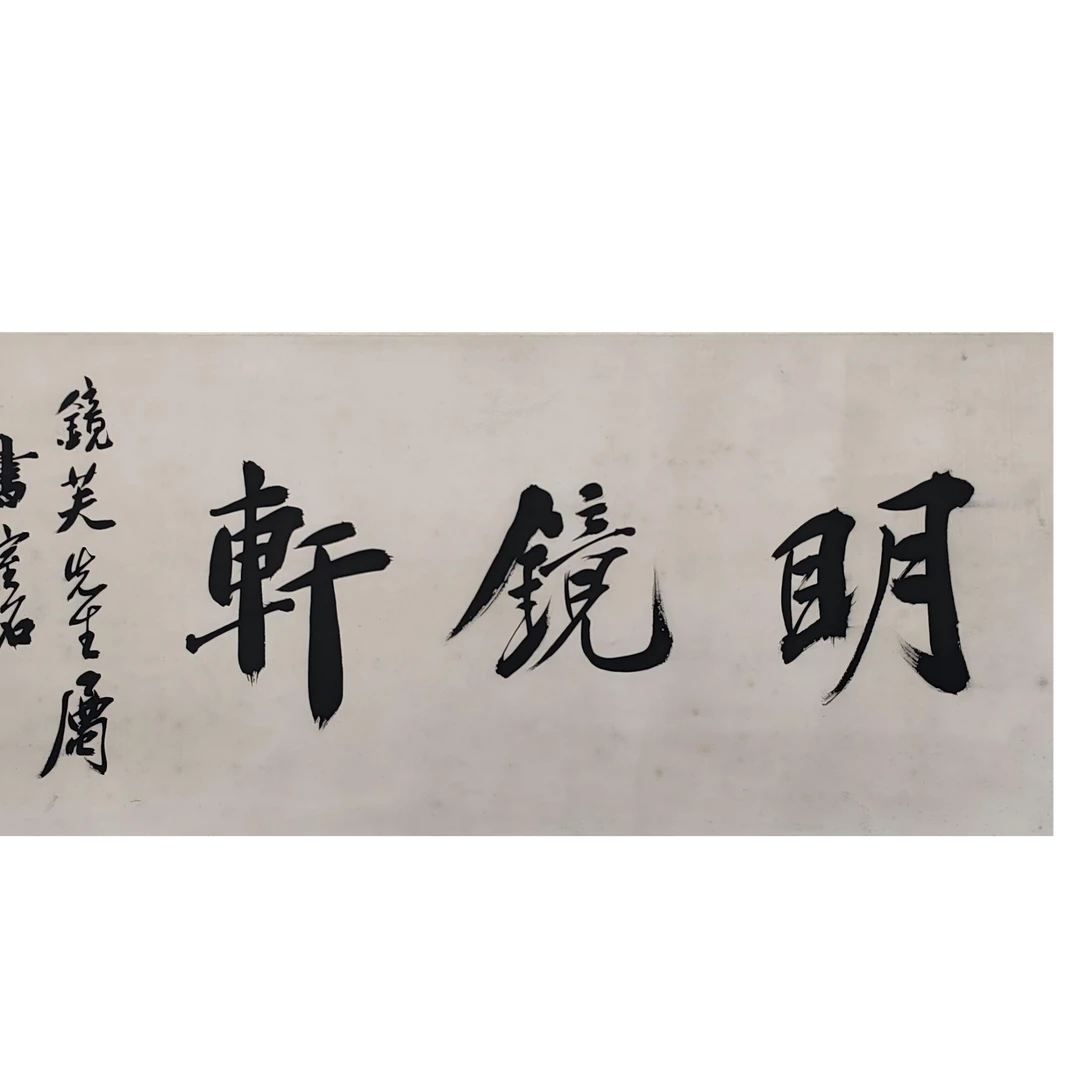 明鏡軒
鏡芙先生屬